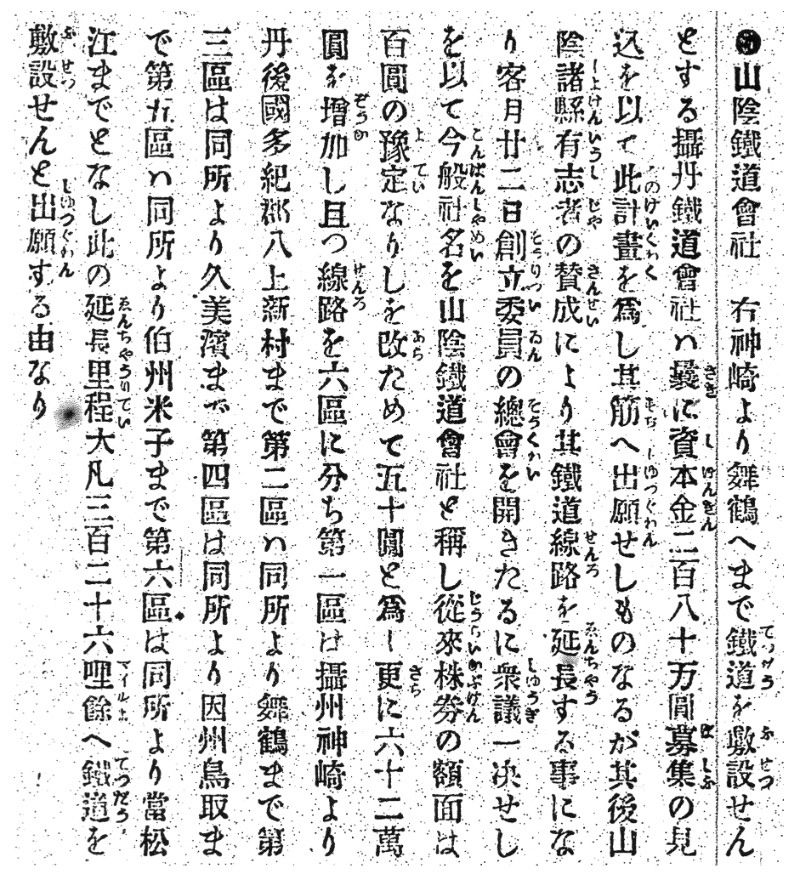 ●山陰鐵道會社　右神崎より舞鶴へまで鐵道を敷設せん
とする攝丹鐵道會社ハ曩に資本金二百八十万圓募集の見
込を以て此計畫を爲し其筋へ出願せしものなるが其後山
陰諸縣有志者の賛成により其鐵道線路を延長する事にな
り客月廿二日創立委員の總會を開きたるに衆議一决せし
を以て今般社名を山陰鐵道會社と稱し從來株劵の額面は
百圓の豫定なりしを改ためて五十圓と爲し更に六十二萬
圓を增加し且つ線路を六區に分ち第一區は攝州神崎より
丹後國多紀郡八上新村まで第二區ハ同所より舞鶴まで第
三區は同所より久美濱まで第四區は同所より因州鳥取ま
で第五區ハ同所より伯州米子まで第六區は同所より當松
江までとなし此の延長里程大凡三百二十六哩餘へ鐵道を
敷設せんと出願する由なり